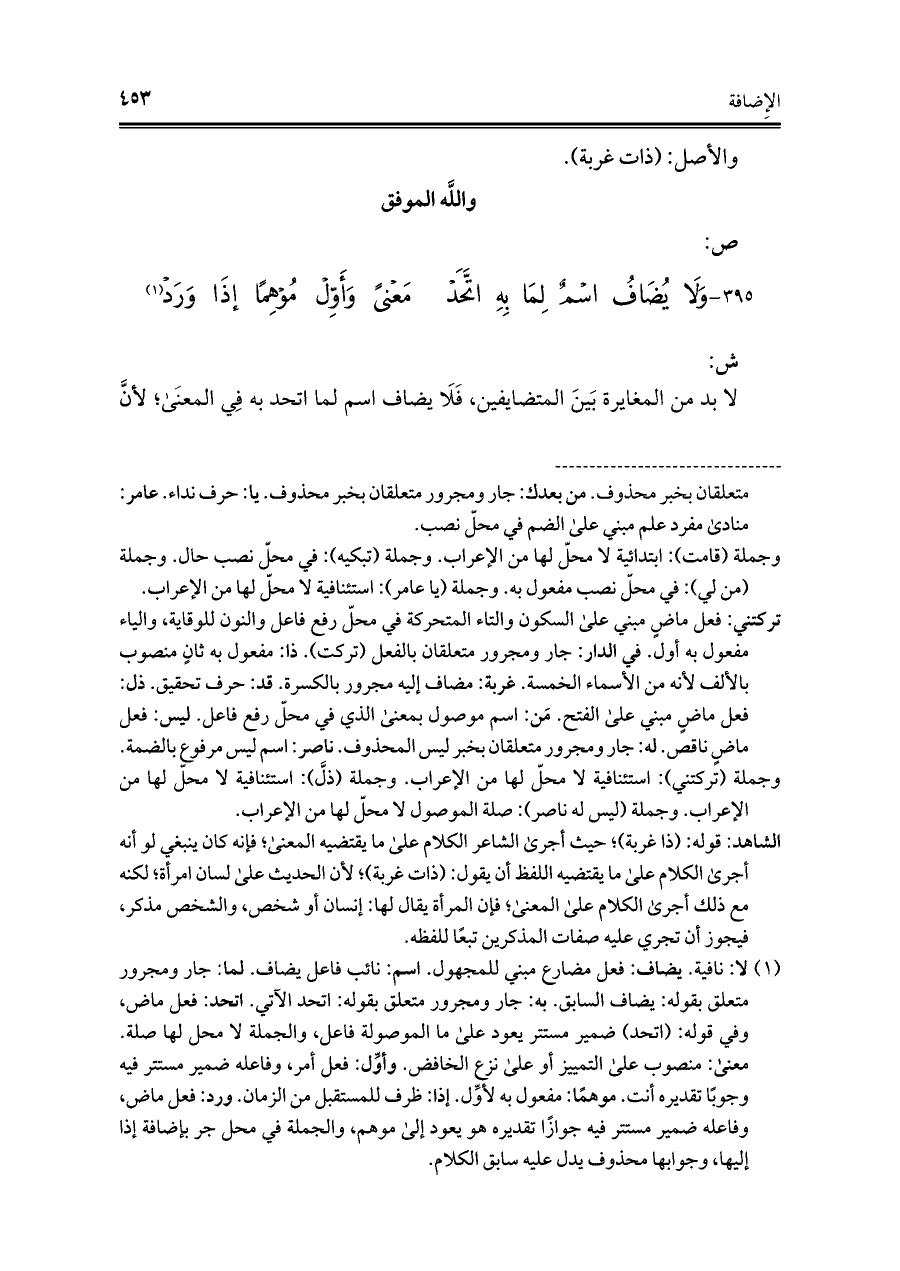 الإِضافة ٤٥٣
والأصل: (ذات غربة).
واللَّه الموفق
ص:
٣٩٥-وَلَا يُضَافُ اسْمٌ لِمَا بِهِ اتَّحَدْ مَعْنىً وَأَوِّلْ مُوْهِمًا إذَا وَرَدْ(١)
ش:
لا بد من المغايرة بَينَ المتضايفين، فَلَا يضاف اسم لما اتحد به فِي المعنَىٰ؛ لأنَّ
متعلقان بخبر محذوف. من بعدك: جار ومجرور متعلقان بخبر محذوف. يا: حرف نداء. عامر:
منادىٰ مفرد علم مبني علىٰ الضم في محلّ نصب.
وجملة (قامت): ابتدائية لا محلّ لها من الإعراب. وجملة (تبكيه): في محلّ نصب حال. وجملة
(من لي): في محلّ نصب مفعول به. وجملة (يا عامر): استئنافية لا محلّ لها من الإعراب.
تركتني: فعل ماضٍ مبني علىٰ السكون والتاء المتحركة في محلّ رفع فاعل والنون للوقاية، والياء
مفعول به أول. في الدار: جار ومجرور متعلقان بالفعل (تركت). ذا: مفعول به ثانٍ منصوب
بالألف لأنه من الأسماء الخمسة. غربة: مضاف إليه مجرور بالكسرة. قد: حرف تحقيق. ذل:
فعل ماضٍ مبني علىٰ الفتح. مَن: اسم موصول بمعنىٰ الذي في محلّ رفع فاعل. ليس: فعل
ماضٍ ناقص. له: جار ومجرور متعلقان بخبر ليس المحذوف. ناصر: اسم ليس مرفوع بالضمة.
وجملة (تركتني): استئنافية لا محلّ لها من الإعراب. وجملة (ذلَّ): استئنافية لا محلّ لها من
الإعراب. وجملة (ليس له ناصر): صلة الموصول لا محلّ لها من الإعراب.
الشاهد: قوله: (ذا غربة)؛ حيث أجرىٰ الشاعر الكلام علىٰ ما يقتضيه المعنىٰ؛ فإنه كان ينبغي لو أنه
أجرىٰ الكلام علىٰ ما يقتضيه اللفظ أن يقول: (ذات غربة)؛ لأن الحديث علىٰ لسان امرأة؛ لكنه
مع ذلك أجرىٰ الكلام علىٰ المعنىٰ؛ فإن المرأة يقال لها: إنسان أو شخص، والشخص مذكر،
فيجوز أن تجري عليه صفات المذكرين تبعًا للفظه.
(١) لا: نافية. يضاف: فعل مضارع مبني للمجهول. اسم: نائب فاعل يضاف. لما: جار ومجرور
متعلق بقوله: يضاف السابق. به: جار ومجرور متعلق بقوله: اتحد الآتي. اتحد: فعل ماض،
وفي قوله: (اتحد) ضمير مستتر يعود علىٰ ما الموصولة فاعل، والجملة لا محل لها صلة.
معنىٰ: منصوب علىٰ التمييز أو علىٰ نزع الخافض. وأوِّل: فعل أمر، وفاعله ضمير مستتر فيه
وجوبًا تقديره أنت. موهمًا: مفعول به لأوِّل. إذا: ظرف للمستقبل من الزمان. ورد: فعل ماض،
وفاعله ضمير مستتر فيه جوازًا تقديره هو يعود إلىٰ موهم، والجملة في محل جر بإضافة إذا
إليها، وجوابها محذوف يدل عليه سابق الكلام.